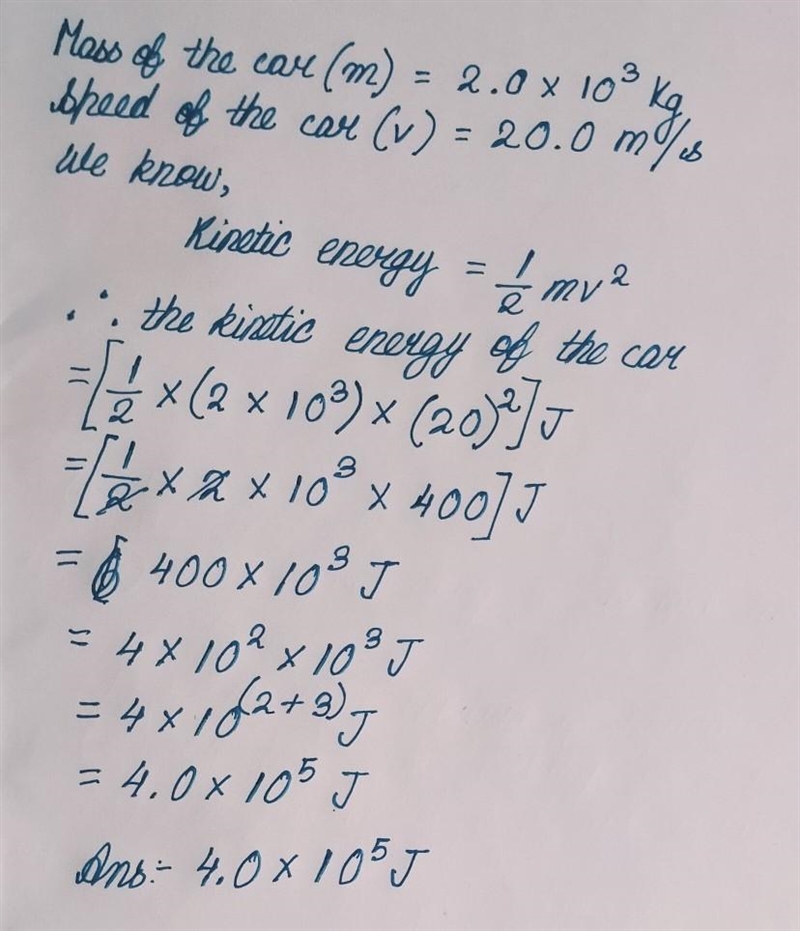 Mass of the car (m) = 2.0 × 10³ Kg
Speed of the car (v) = 20.0 m/s
We know,
Kinetic energy = 1/2 mv²
∴ the kinetic energy of the car
= [1/2 × (2 × 10³) × (20)²] J
= [1/2 × 2 × 10³ × 400] J
= 400 × 10³ J
= 4 × 10² × 10³ J
= 4 × 10^(2+3) J
= 4.0 × 10⁵ J
Ans:- 4.0 × 10⁵ J